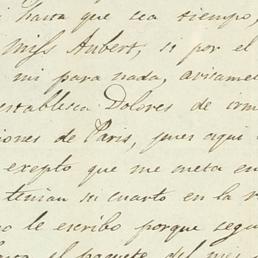 hasta que sea tiempo,
Miss Aubert, si por el
mi para nada, avisame
establesca Dolores de irm
iones de Paris, pues aqui
exepto que me meta en
tenian su cuarto en la
le escribo porque segu
el paquete del mes